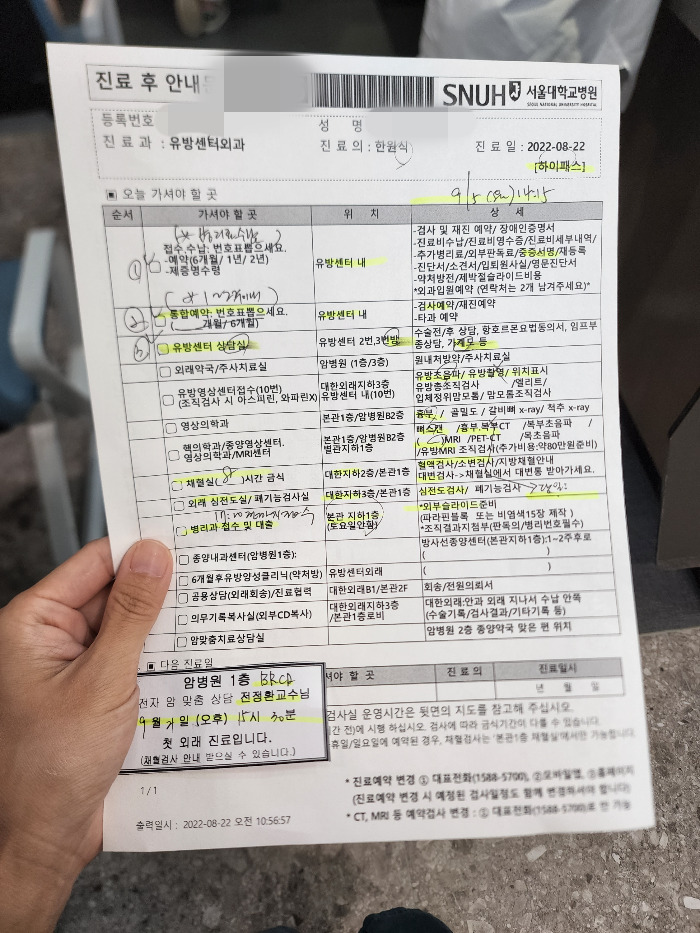 진료 후 안내
SNUH 서울대학교병원
SEOUL NATIONAL UNIVERSITY HOSPITAL
등록번호
성 명
진 료 과 : 유방센터외과
진 료 의 : 한원식
진 료 일 : 2022-08-22
[하이패스]
▣ 오늘 가셔야 할 곳
9/5 14:15
순서 가셔야 할 곳 위 치 상 세
①
접수.수납: 번호표뽑으세요.
-예약(6개월/ 1년/ 2년)
-제증명수령
유방센터 내
-검사 및 재진 예약/ 장애인증명서
-진료비수납/진료비영수증/진료비세부내역/
-추가병리료/외부판독료/중증서명/재등록
-진단서/소견서/입퇴원사실/영문진단서
-약처방전/제박절슬라이드비용
*외과입원예약 (연락처는 2개 남겨주세요)*
②
통합예약: 번호표뽑으세요.
(____개월/ 6개월)
유방센터 내
-검사예약/재진예약
-타과 예약
③
유방센터 상담실
유방센터 2번,3번방
수술전/후 상담, 항호르몬요법동의서, 임프부
종상담, 가제모 등
외래약국/주사치료실
암병원 (1층/3층)
원내처방약/주사치료실
유방영상센터접수(10번)
(조직검사 시 아스피린, 와파린X)
대한외래지하3층
유방센터 내(10번)
유방초음파/ 유방촬영/ 위치표시
유방총조직검사 /엘리트/
입체정위맘모톰/ 맘모톰조직검사
영상의학과
본관1층/암병원B2층
흉부 / 골밀도 / 갈비뼈 x-ray/ 척추 x-ray
핵의학과/종양영상센터.
영상의학과/MRI센터
본관1층/암병원B2층
별관지하1층
뼈스캔 /흉부.복부CT /복부초음파 /
MRI /PET-CT /목초음파
/유방MRI 조직검사(추가비용:약80만원준비)
채혈실( 8 )시간 금식
대한지하2층/본관1층
혈액검사/소변검사/지방채혈안내
대변검사->채혈실에서 대변통 받아가세요.
외래 심전도실/ 폐기능검사실
대한지하3층/본관1층
심전도검사/ 폐기능검사
병리과 접수 및 대출
본관 지하1층
(토요일안함)
*외부슬라이드준비
(파라핀블록 또는 비염색15장 제작 )
*조직결과지첨부(판독의/병리번호필수)
종양내과센터(암병원1층):
방사선종양센터(본관지하1층):1~2주후로
( )
6개월후유방양성클리닉(약처방)
유방센터외래
( )
공용상담(외래회송)/진료협력
대한외래B1/본관2F
회송/전원의뢰서
의무기록복사실(외부CD복사)
대한외래지하3층
/본관1층로비
대한외래:안과 외래 지나서 수납 안쪽
(수술기록/검사결과/기타기록 등)
암맞춤치료상담실
암병원 2층 종양약국 맞은 편 위치
▣ 다음 진료일
셔야 할 곳 진 료 의 진료일시
년 월 일
암병원 1층 BRCA
전자 암 맞춤 상담 전정환교수님
9월 일 (오후) 15시 30분
첫 외래 진료입니다.
(채혈검사 안내 받으실 수 있습니다.)
검사실 운영시간은 뒷면의 지도를 참고해 주십시오.
간 전)에 시행 하십시오. 검사에 따라 금식기간이 다를 수 있습니다.
휴일/일요일에 예약된 경우, 채혈검사는 '본관1층 채혈실'에서만 가능합니다.
* 진료예약 변경 ① 대표전화(1588-5700), ②모바일앱, ③홈페이지
(진료예약 변경 시 예정된 검사일정도 함께 변경하셔야 합니다)
* CT, MRI 등 예약검사 변경 : ① 대표전화(1588-5700)로만 가능
1/1
출력일시 : 2022-08-22 오전 10:56:57